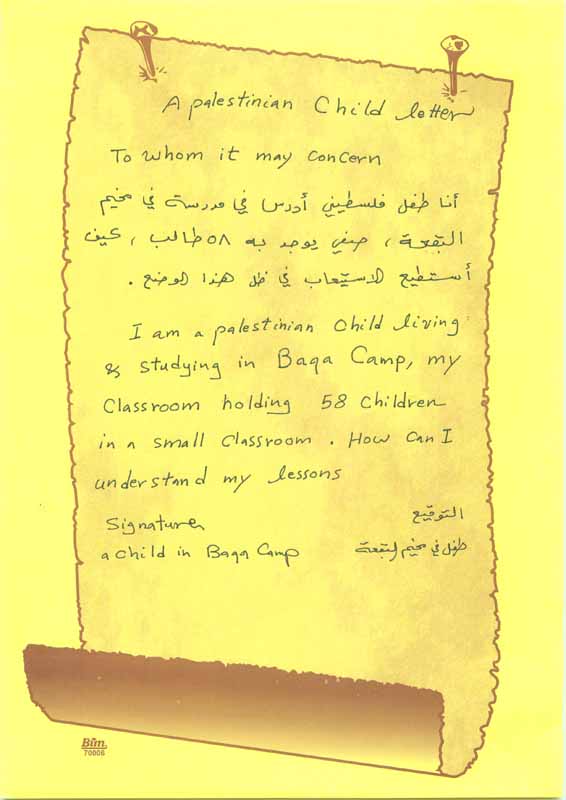 A palestinian Child letter
To whom it may concern
أنا طفل فلسطيني أدرس في مدرسة في مخيم
البقعة ، صفي يوجد به ٥٨ طالب ، كيف
أستطيع الاستيعاب في ظل هذا الوضع .
I am a palestinian child living
& studying in Baqa Camp, my
Classroom holding 58 children
in a small classroom . How can I
understand my lessons
Signature
التوقيع
a child in Baqa Camp
طفل في مخيم البقعة
Bim
70006